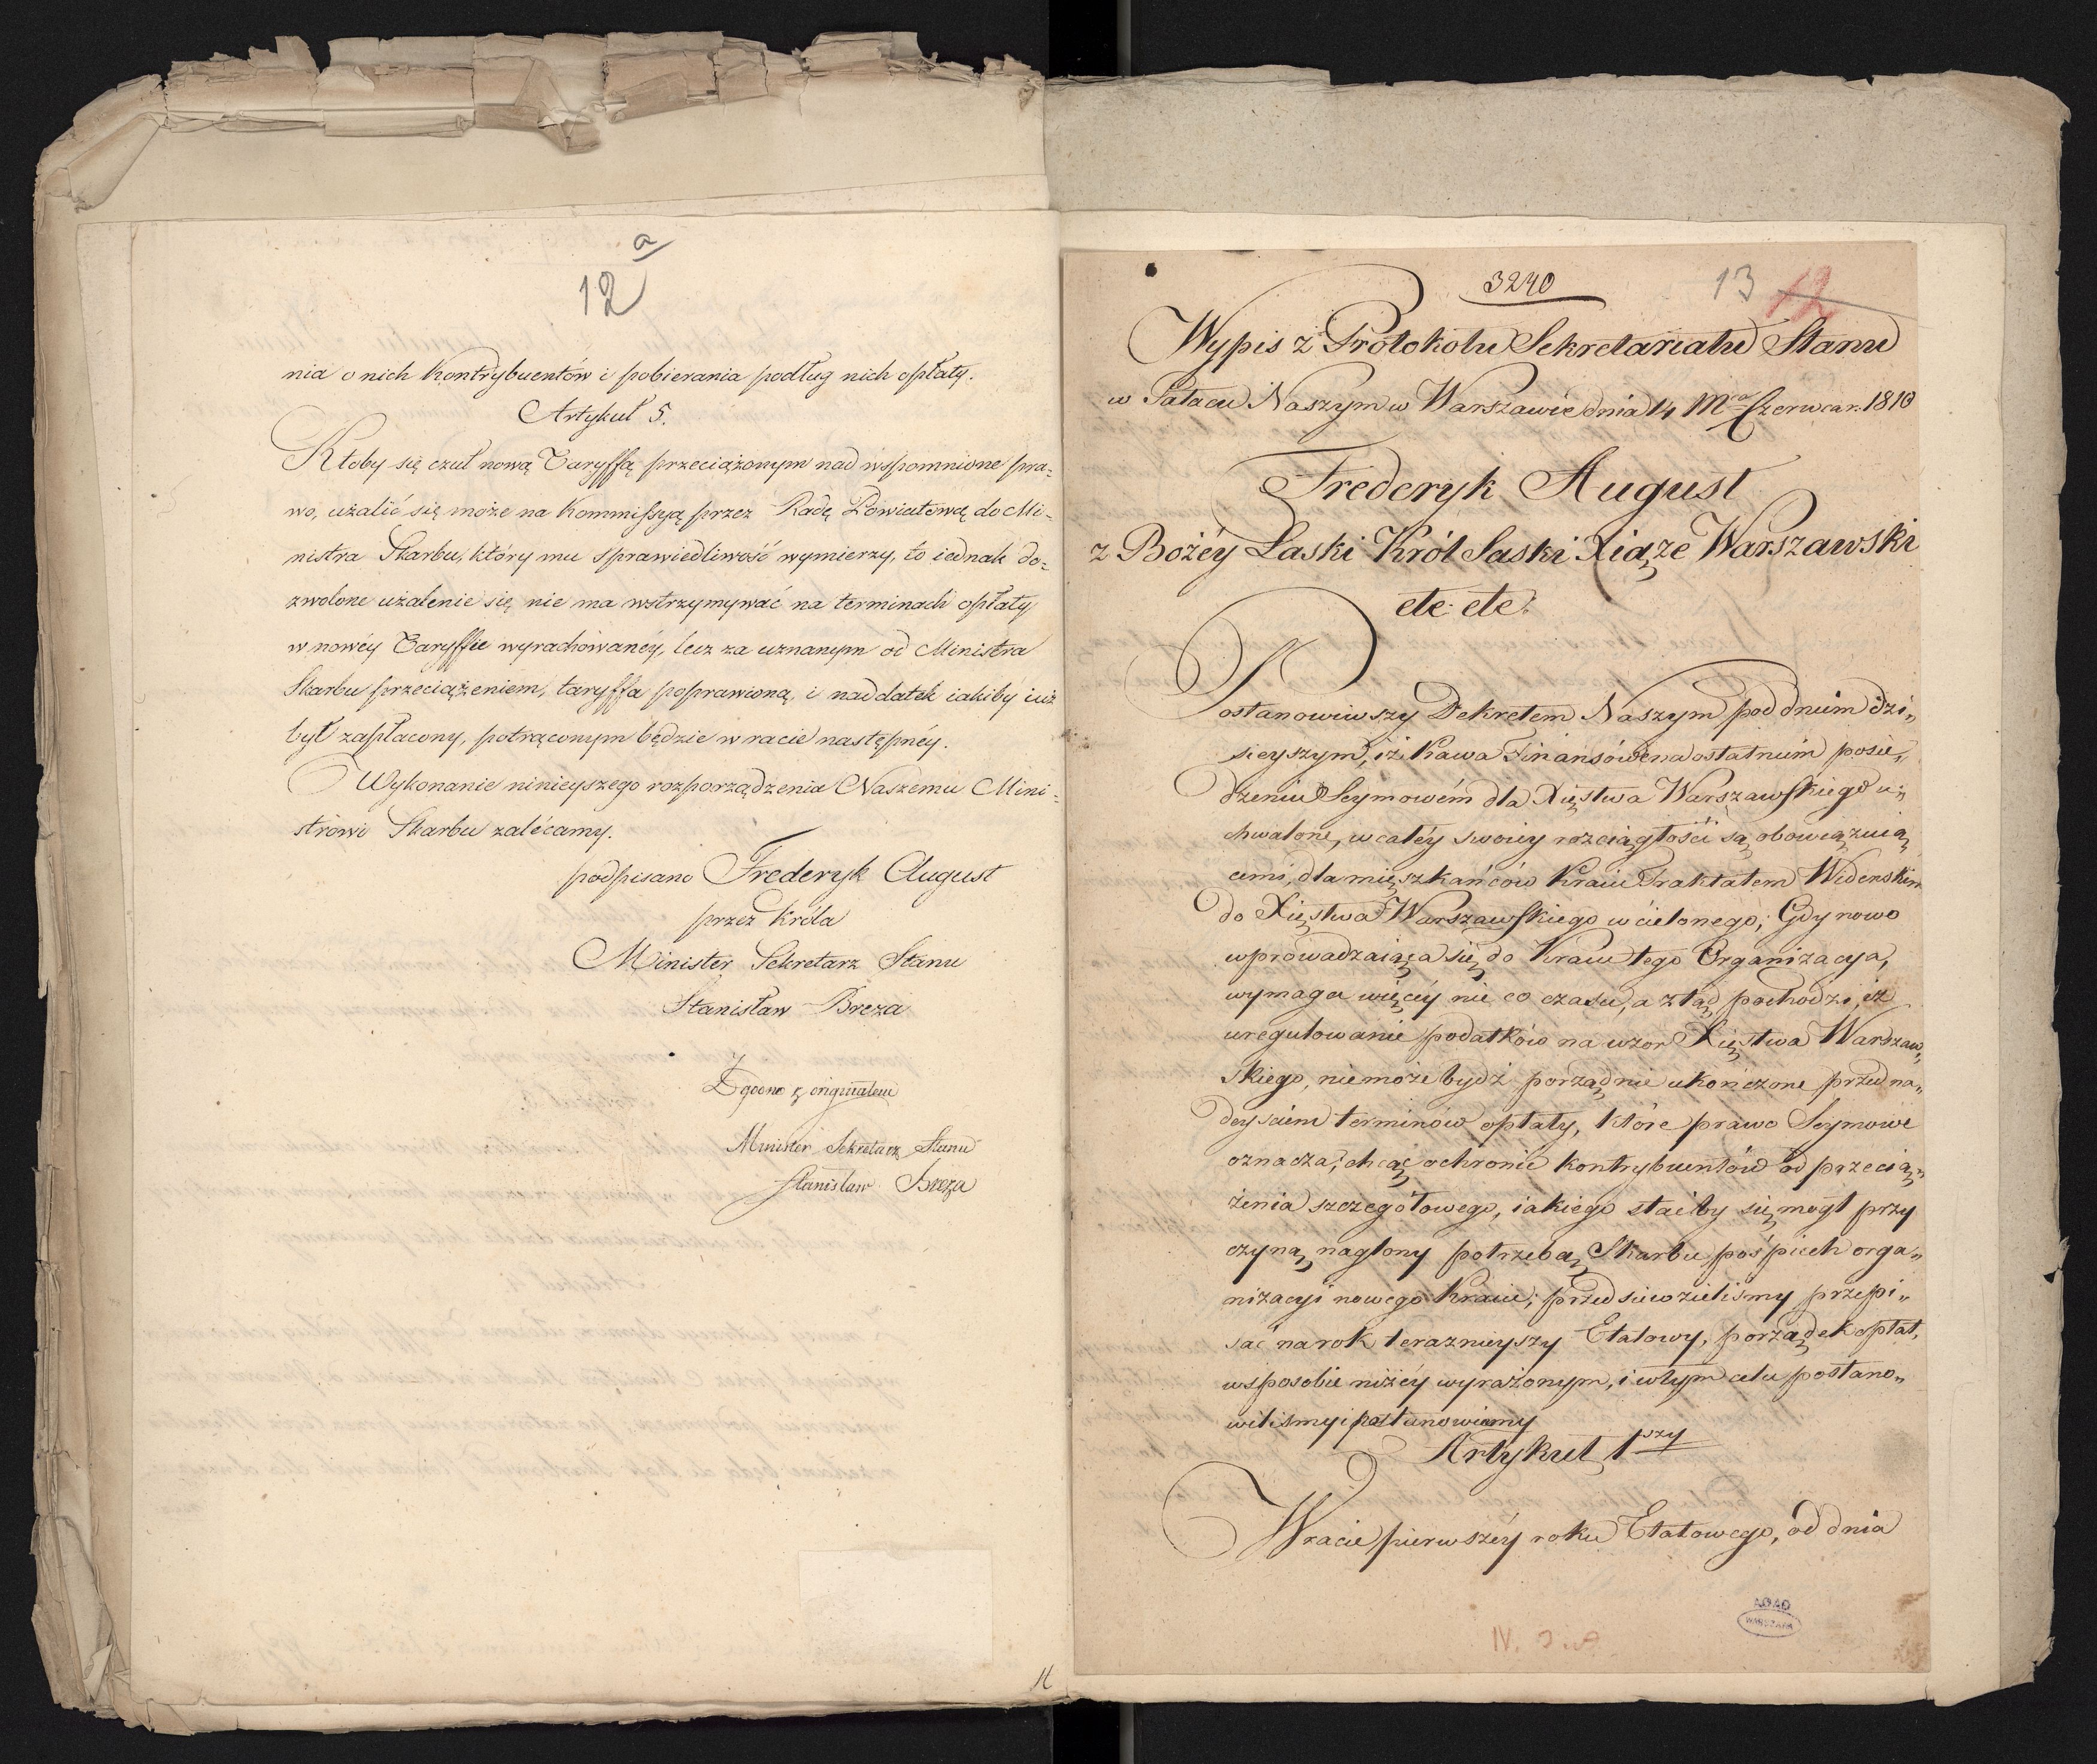 a
12
nia o nich Kontrybuentów i pobierania podług nich opłaty.
Artykuł 5.
Ktoby się czuł nową Taryffą przeciążonym nad wspomnione pra-
wo, użalić się może na Kommissyą przez Radę Powiatową do Mi-
nistra Skarbu, który mu sprawiedliwość wymierzy, to iednak do-
zwolone użalenie się nie ma wstrzymywać na terminach opłaty
w nowéy Taryffie wyrachowanéy, lecz za uznanym od Ministra
Skarbu przeciążeniem, taryffa poprawioną, i naddatek iakiby iuż
był zapłacony, potrąconym będzie w racie następnéy.
Wykonanie ninieyszego rozporządzenia Naszemu Mini-
strowi Skarbu zalécamy.
podpisano Frederyk August
przez Króla
Minister Sekretarz Stanu
Stanisław Breza
Zgodno z originałem
Minister Sekretarz Stanu
Stanisław Breza
3240
13 12
Wypis z Protokołu Sekretariatu Stanu
w Pałacu Naszym w Warszawie dnia 14 Mca Czerwca r. 1810
Frederyk August
z Bożéy Łaski Król Saski Xiąże Warszawski
etc etc.
Postanowiwszy Dekretem Naszym pod dniem dzi„
sieyszym, iż Prawa Finansowe na ostatnim posie„
dzeniu Seymowém dla Xięstwa Warszawskiego u„
chwalone, w całéy swoiey rozciągłości są obowiązuią„
cemi, dla mięszkańców Kraiu Traktatem Widenskim
do Xięstwa Warszawskiego wcielonego; Gdy nowo
wprowadzaiąca się do Kraiu tego Organizacya,
wymaga więcéy nieco czasu, a ztąd pochodzi, iż
uregulowanie podatków na wzor Xięstwa Warszaw„
skiego, niemoże bydź porządnie ukończone przed na„
deysciem terminów opłaty, które prawo Seymowe
oznacza; chcąc ochronić kontrybuentów od przecią„
żenia szczegółowego, iakiego staćby się mógł przy
czyną, naglony potrzebą Skarbu, pośpiech orga„
nizacyi nowego Kraiu; przedsiewzieliśmy przepi„
sać na rok terazniejszy Etatowy, porządek opłat,
w sposobie niżéy wyrażonym, i w tym celu postano„
wiliśmy i postanowiamy
Artykuł 1szy
W racie pierwszéy roku Etatowego, od dnia
AGAD
WARSZAWA